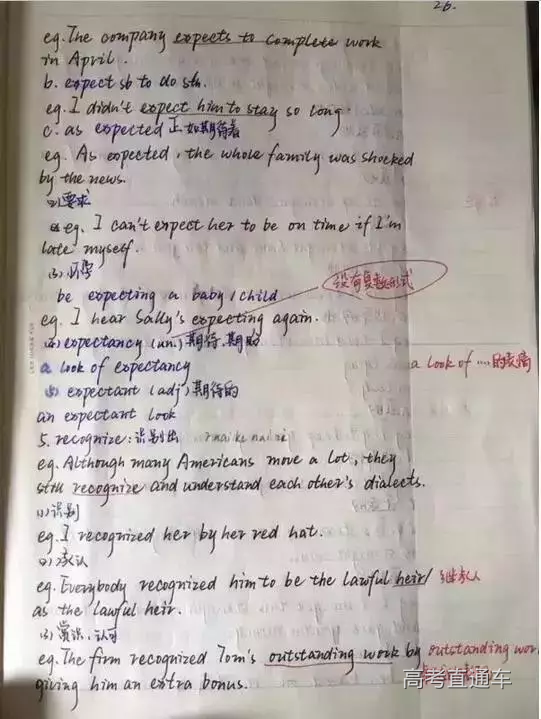 26.
eg. The company expects to complete work
in April.
b. expect sb to do sth.
eg. I didn't expect him to stay so long
c. as expected 正如期待着
eg. As expected, the whole family was shocked
by the news.
(2) 要求
eg. I can't expect her to be on time if I'm
late myself.
(3) 怀孕
没有复数形式
be expecting a baby / child
eg. I hear Sally's expecting again.
expectancy (un.) 期待,期盼
a look of expectancy
a look of .... 的表情
expectant (adj) 期待的
an expectant look
5. recognize: 识别出
eg. Although many Americans move a lot, they
still recognize and understand each other's dialects.
(1) 识别
eg. I recognized her by her red hat.
(2) 承认
eg. Everybody recognized him to be the lawful heir / 继承人
as the lawful heir.
(3) 赏识,认可
eg. The firm recognized Tom's outstanding work by outstanding wor
giving him an extra bonus.
高考直通车